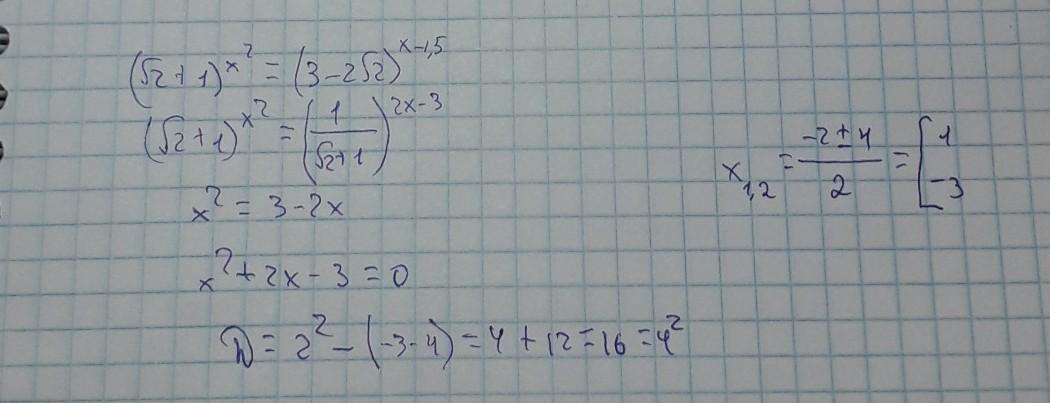 (√2+1)^x² = (3-2√2)^x-1,5
(√2+1)^x² = (1/(√2+1))^2x-3
x² = 3-2x
x²+2x-3=0
D = 2² - (-3-4) = 4+12=16=4²
x₁,₂ = (-2±4)/2 = [1 -3